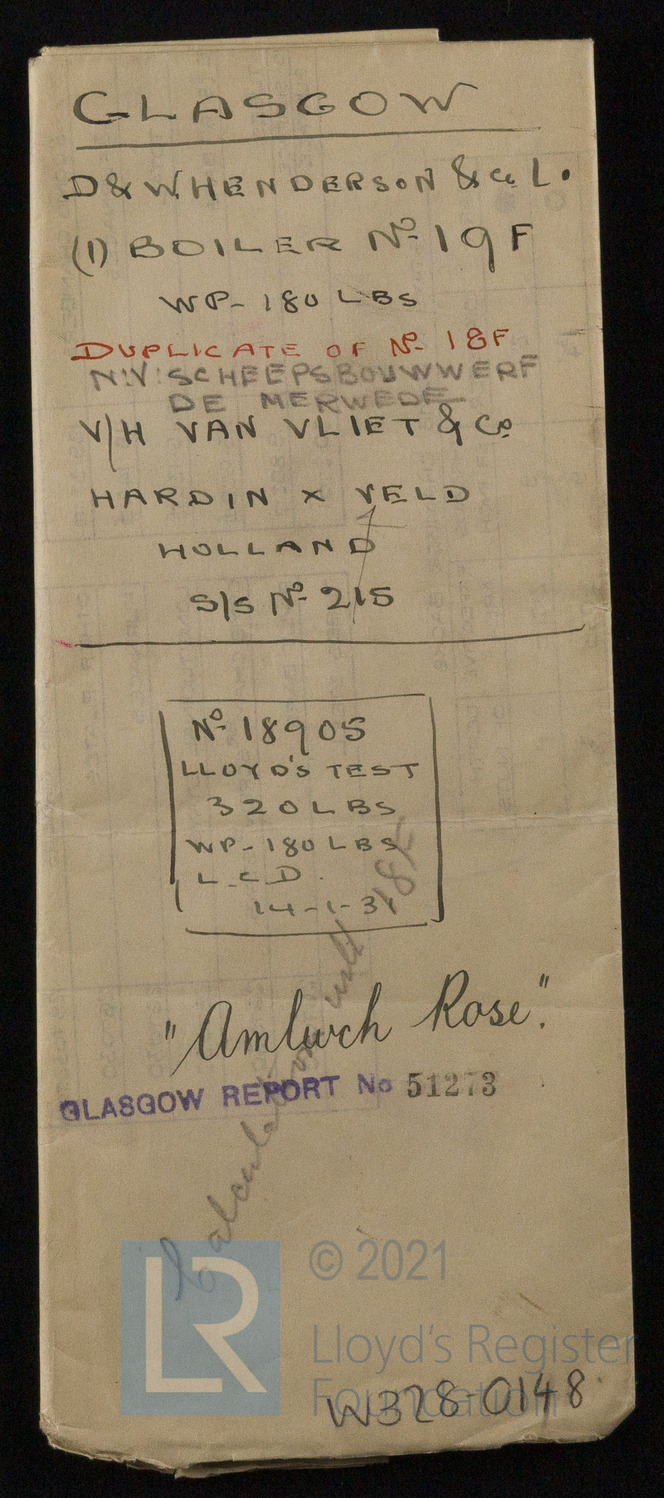 GLASGOW
D & W HENDERSON & Co L.
(1) BOILER No 19F
WP- 180 LBS
DUPLICATE OF No 18F
N.V. SCHEEPSBOUWWERF
DE MERWEDE
V/H VAN VLIET & Co
HARDIN X VELD
HOLLAND
S/S No 215
No 18905
LLOYD'S TEST
320 LBS
WP- 180 LBS
L.C.D.
14-1-31
"Amlwch Rose".
GLASGOW REPORT No 51273
Calculations with 18F
LR
© 2021
Lloyd's Register
Foundation
W328-0148